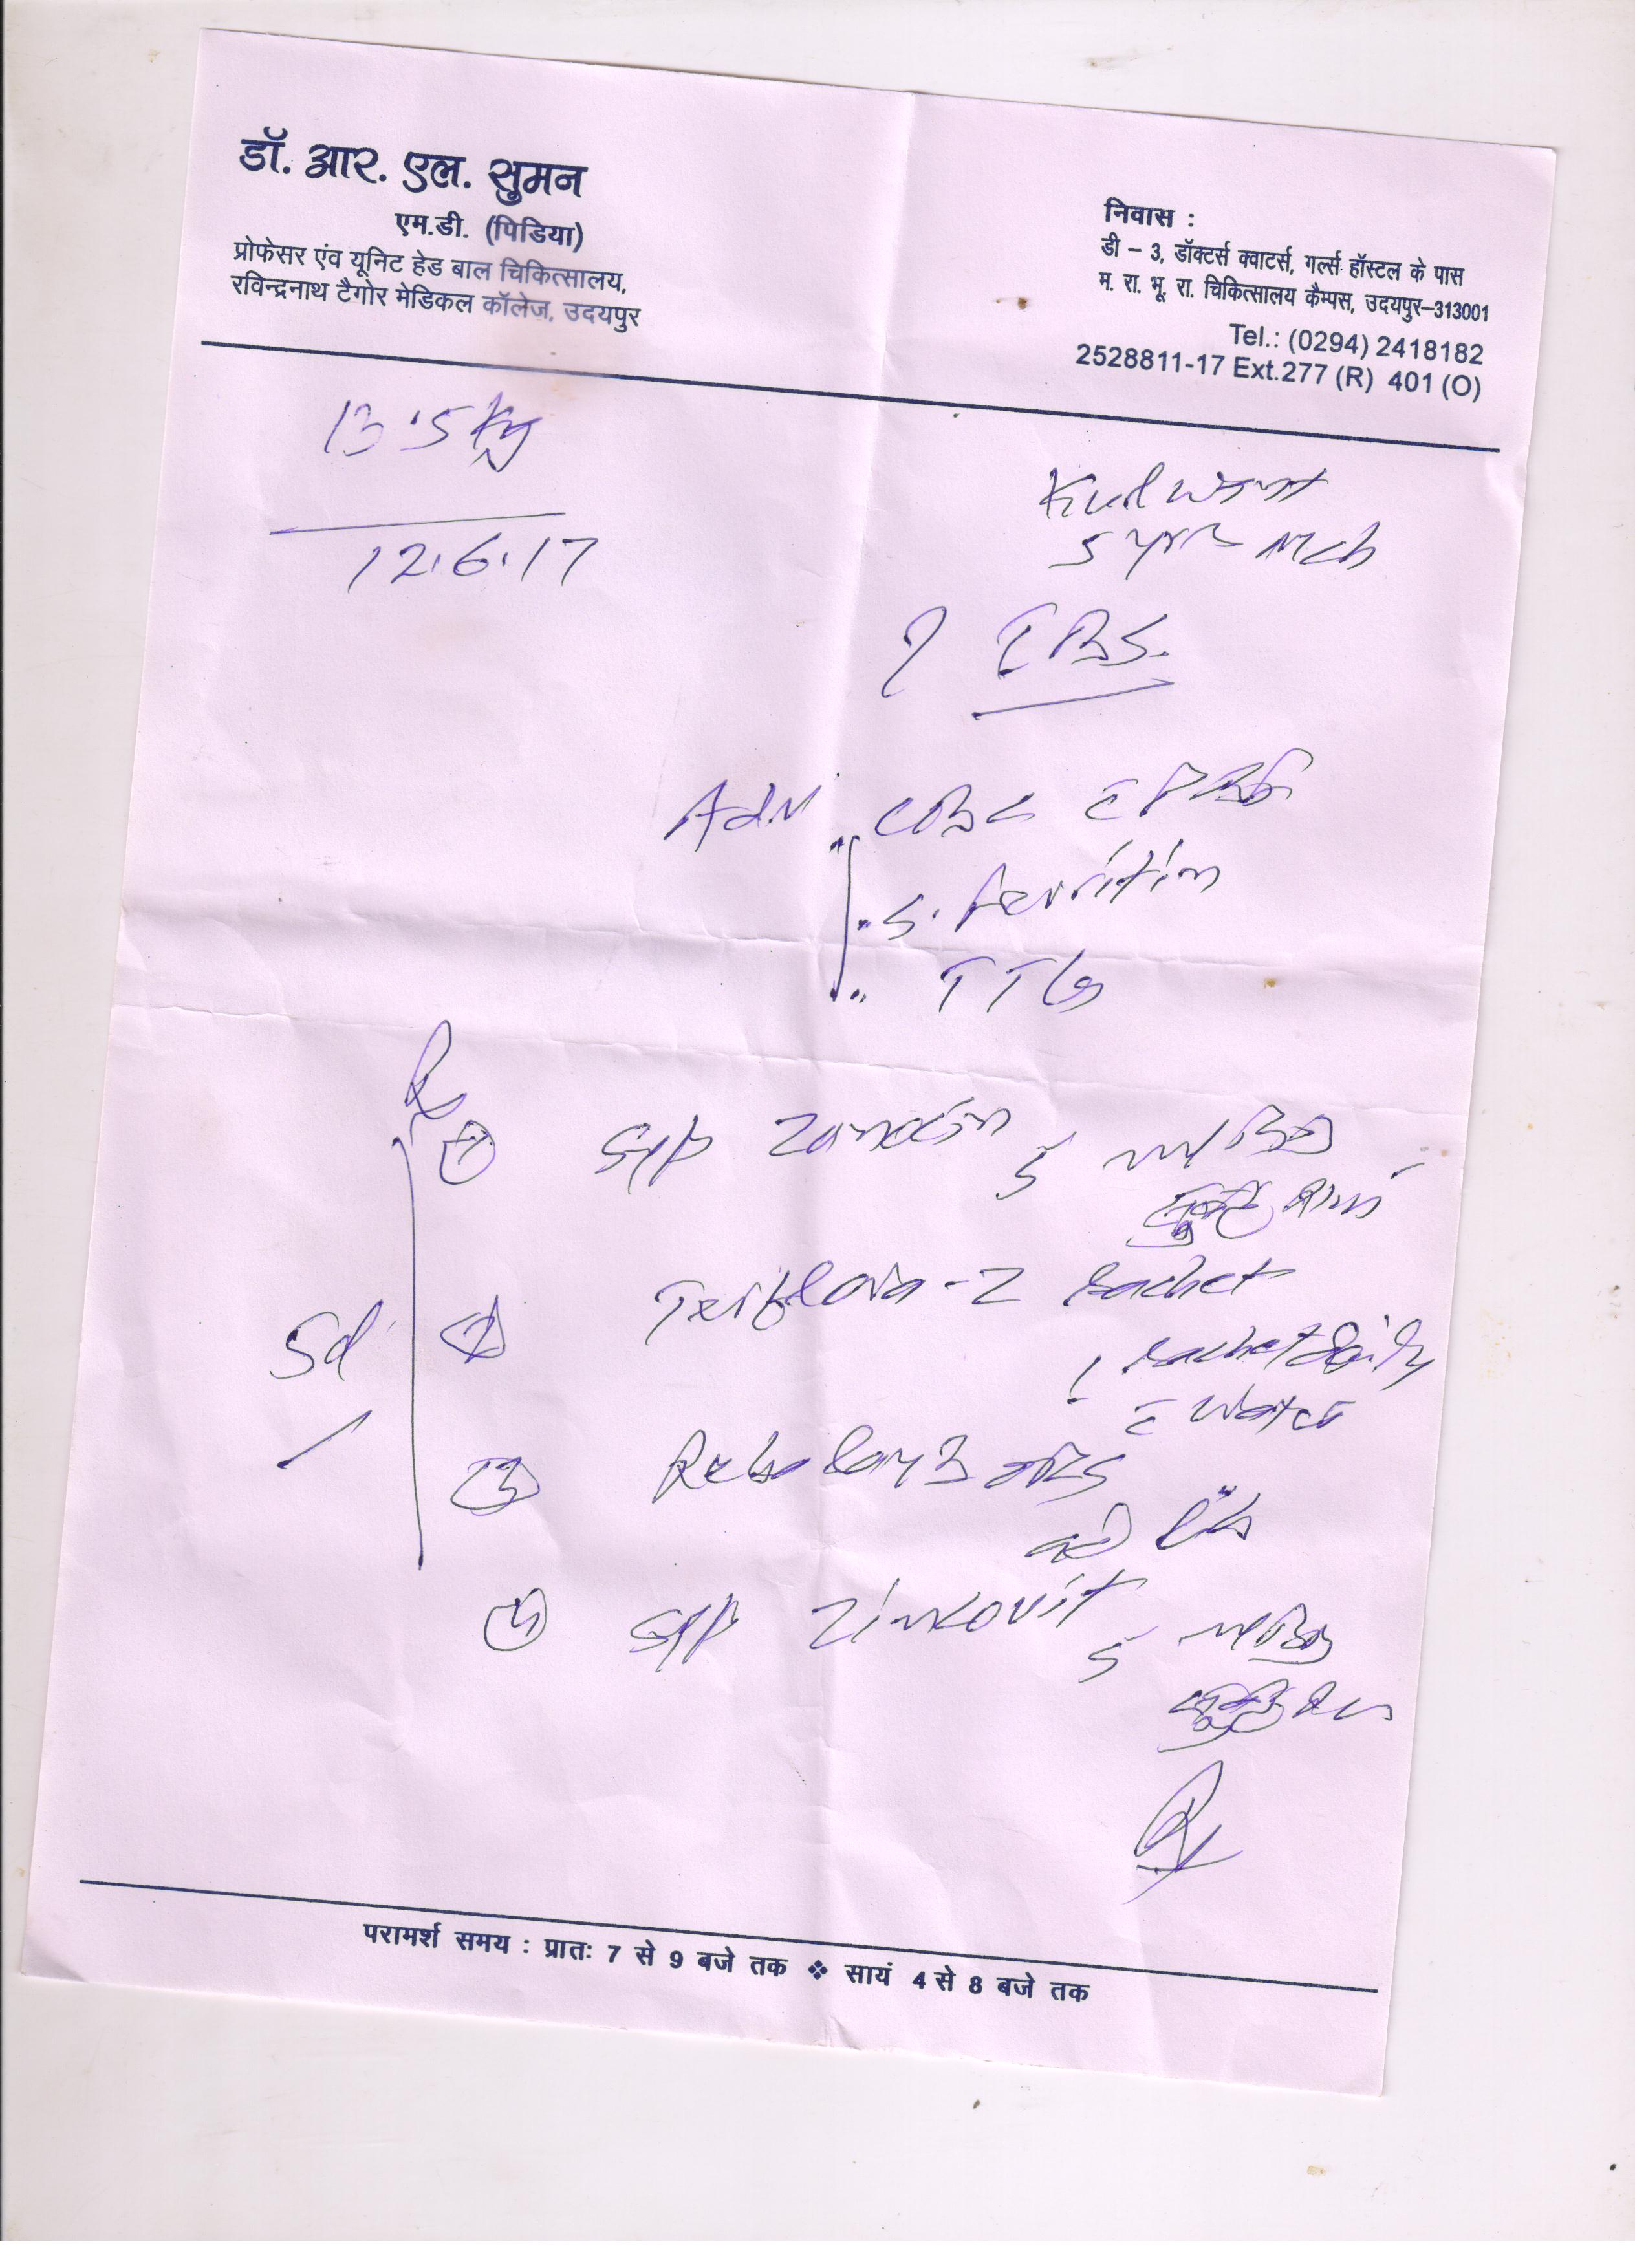 डॉ. आर. एल. सुमन
एम.डी. (पिडिया)
प्रोफेसर एंव यूनिट हेड बाल चिकित्सालय,
रविन्द्रनाथ टैगोर मेडिकल कॉलेज, उदयपुर
निवास :
डी – 3, डॉक्टर्स क्वाटर्स, गर्ल्स हॉस्टल के पास
म. रा. भू. रा. चिकित्सालय कैम्पस, उदयपुर–313001
Tel.: (0294) 2418182
2528811-17 Ext.277 (R) 401 (O)
13.5 Kg
12.6.17
5 yrs Mch
? IBS.
Adv CBC PBF
S. ferritin
TTG
Rx
① Syp 5
शाम
② -Z sachet
1 sachet daily
water
5d
③ ORS
④ Syp Zincovit 5
परामर्श समय : प्रातः 7 से 9 बजे तक ❖ सायं 4 से 8 बजे तक